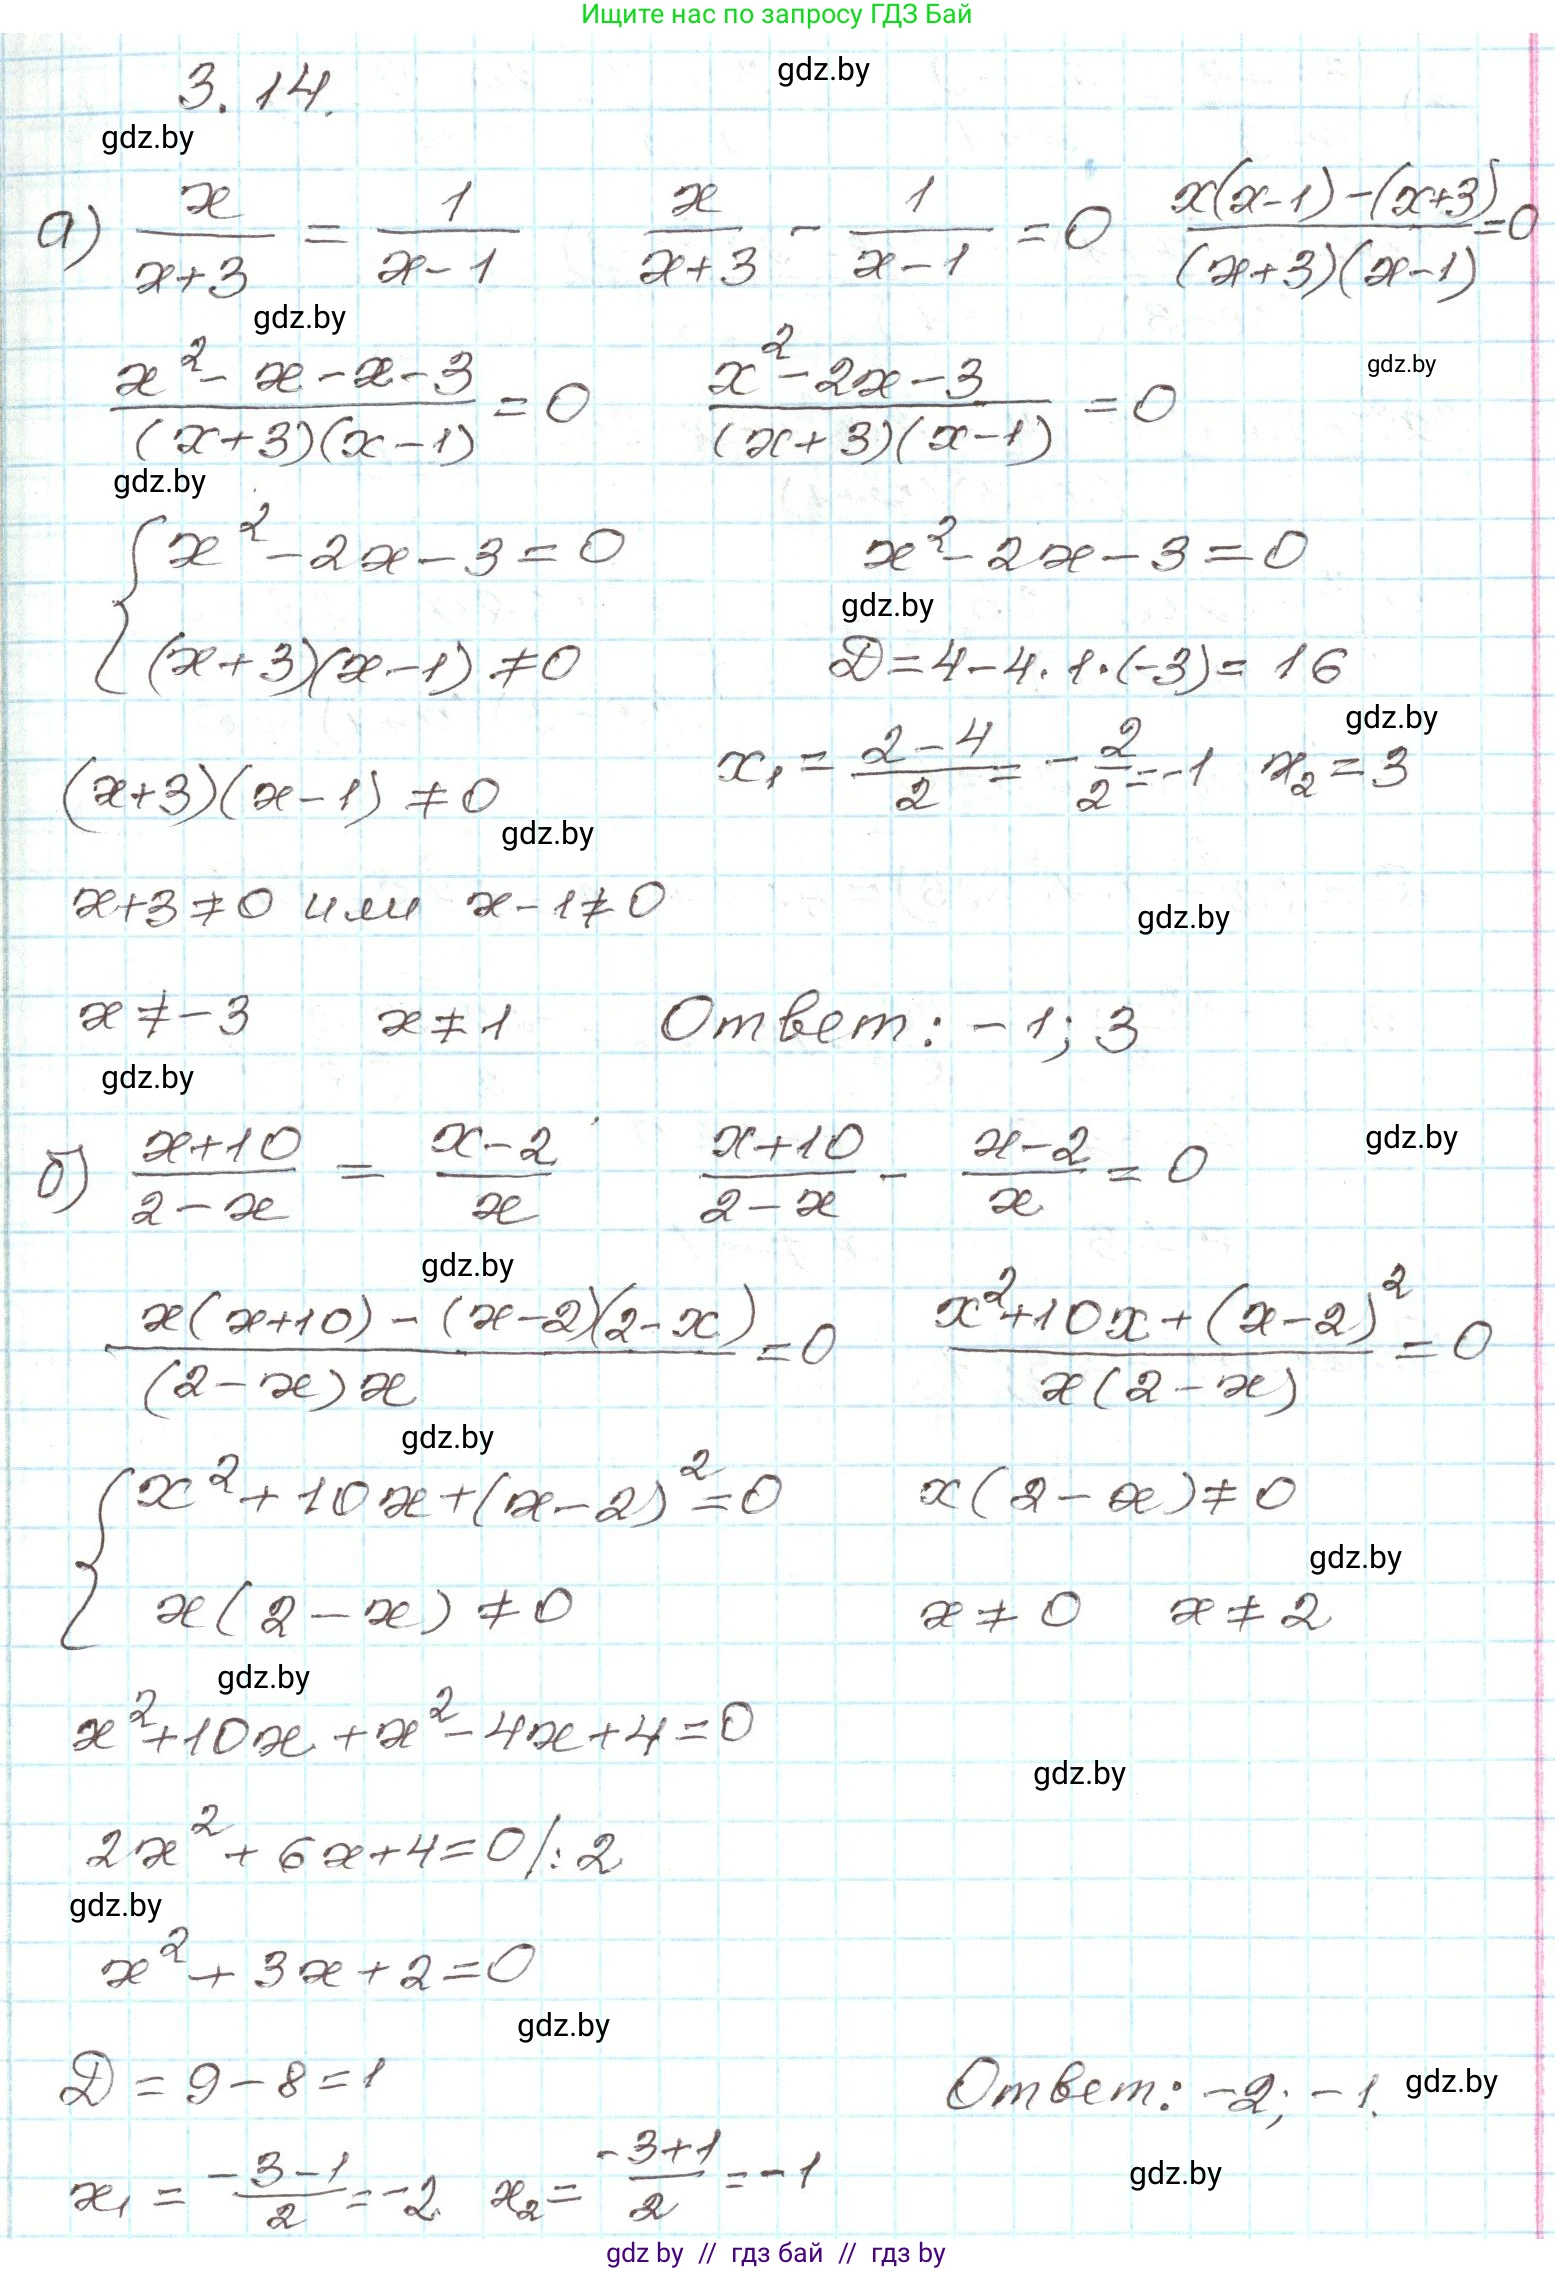 Ищите нас по запросу ГДЗ Бай
3.14.
gdz.by
gdz.by
а) x/(x+3) = 1/(x-1)   x/(x+3) - 1/(x-1) = 0   (x(x-1)-(x+3))/((x+3)(x-1)) = 0
gdz.by
(x²-x-x-3)/((x+3)(x-1)) = 0   (x²-2x-3)/((x+3)(x-1)) = 0
gdz.by
gdz.by
{ x²-2x-3=0   x²-2x-3=0
gdz.by
(x+3)(x-1)≠0   D=4-4·1·(-3)=16
gdz.by
(x+3)(x-1)≠0   x₁ = (2-4)/2 = -2/2 = -1   x₂=3
gdz.by
x+3≠0 или x-1≠0
gdz.by
x≠-3   x≠1   Ответ: -1; 3
gdz.by
б) (x+10)/(2-x) = (x-2)/x   (x+10)/(2-x) - (x-2)/x = 0
gdz.by
gdz.by
(x(x+10)-(x-2)(2-x))/((2-x)x) = 0   (x²+10x+(x-2)²)/(x(2-x)) = 0
gdz.by
{ x²+10x+(x-2)²=0   x(2-x)≠0
gdz.by
x(2-x)≠0   x≠0   x≠2
gdz.by
x²+10x+x²-4x+4=0
gdz.by
2x²+6x+4=0/:2
gdz.by
x²+3x+2=0
gdz.by
D=9-8=1   Ответ: -2; -1.
gdz.by
x₁ = (-3-1)/2 = -2   x₂ = (-3+1)/2 = -1
gdz.by
gdz by // гдз бай // гдз by